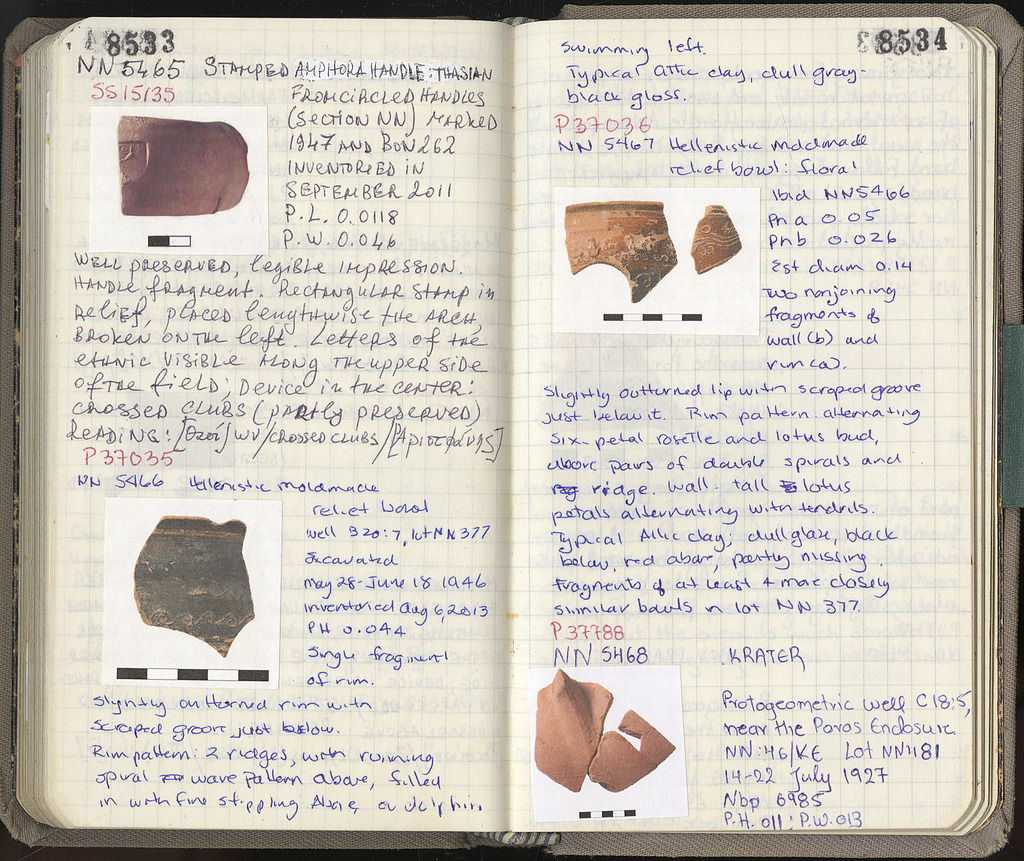 8533
NN 5465 STAMPED AMPHORA HANDLE: THASIAN
SS 15135
FROM CIRCLED HANDLES
(SECTION NN) MARKED
1947 AND BON 262
INVENTORIED IN
SEPTEMBER 2011
P.L. 0.0118
P.W. 0.046
WELL PRESERVED, legible IMPRESSION.
HANDLE fragment. Rectangular Stamp in
Relief, placed lengthwise the ARCH,
BROKEN ON THE left. Letters of the
ethnic visible ALONG the upper side
of the field; Device in the center:
CROSSED CLUBS (partly preserved)
Reading: [Θασί]ων/CROSSED CLUBS/[Ἀριστοφάνης]
P 37035
NN 5466 Hellenistic moldmade
relief bowl
well B20:7, lot NN 377
Excavated
may 28-June 18 1946
inventoried Aug 6, 2013
PH 0.044
Single fragment
of rim.
Slightly outturned rim with
scraped groove just below.
Rim pattern: 2 ridges, with running
spiral wave pattern above, filled
in with fine stippling. Above, a dolphin
8534
swimming left.
Typical Attic clay, dull gray-
black gloss.
P 37036
NN 5467 Hellenistic moldmade
relief bowl: floral
Ibid NN5466
PH a 0.05
PH b 0.026
Est diam 0.14
Two nonjoining
fragments of
wall (b) and
rim (a).
Slightly outturned lip with scraped groove
just below it. Rim pattern: alternating
six-petal rosette and lotus bud,
above pairs of double spirals and
ridge. Wall: tall lotus
petals alternating with tendrils.
Typical Attic clay; dull glaze, black
below, red above, partly missing.
Fragments of at least 4 more closely
similar bowls in lot NN 377.
P 37788
NN 5468 KRATER
Protogeometric well C 18:5,
near the Poros Enclosure
NN:46/KE Lot NN 181
14-22 July 1927
Nbp 6985
P.H. 011; P.W. 013